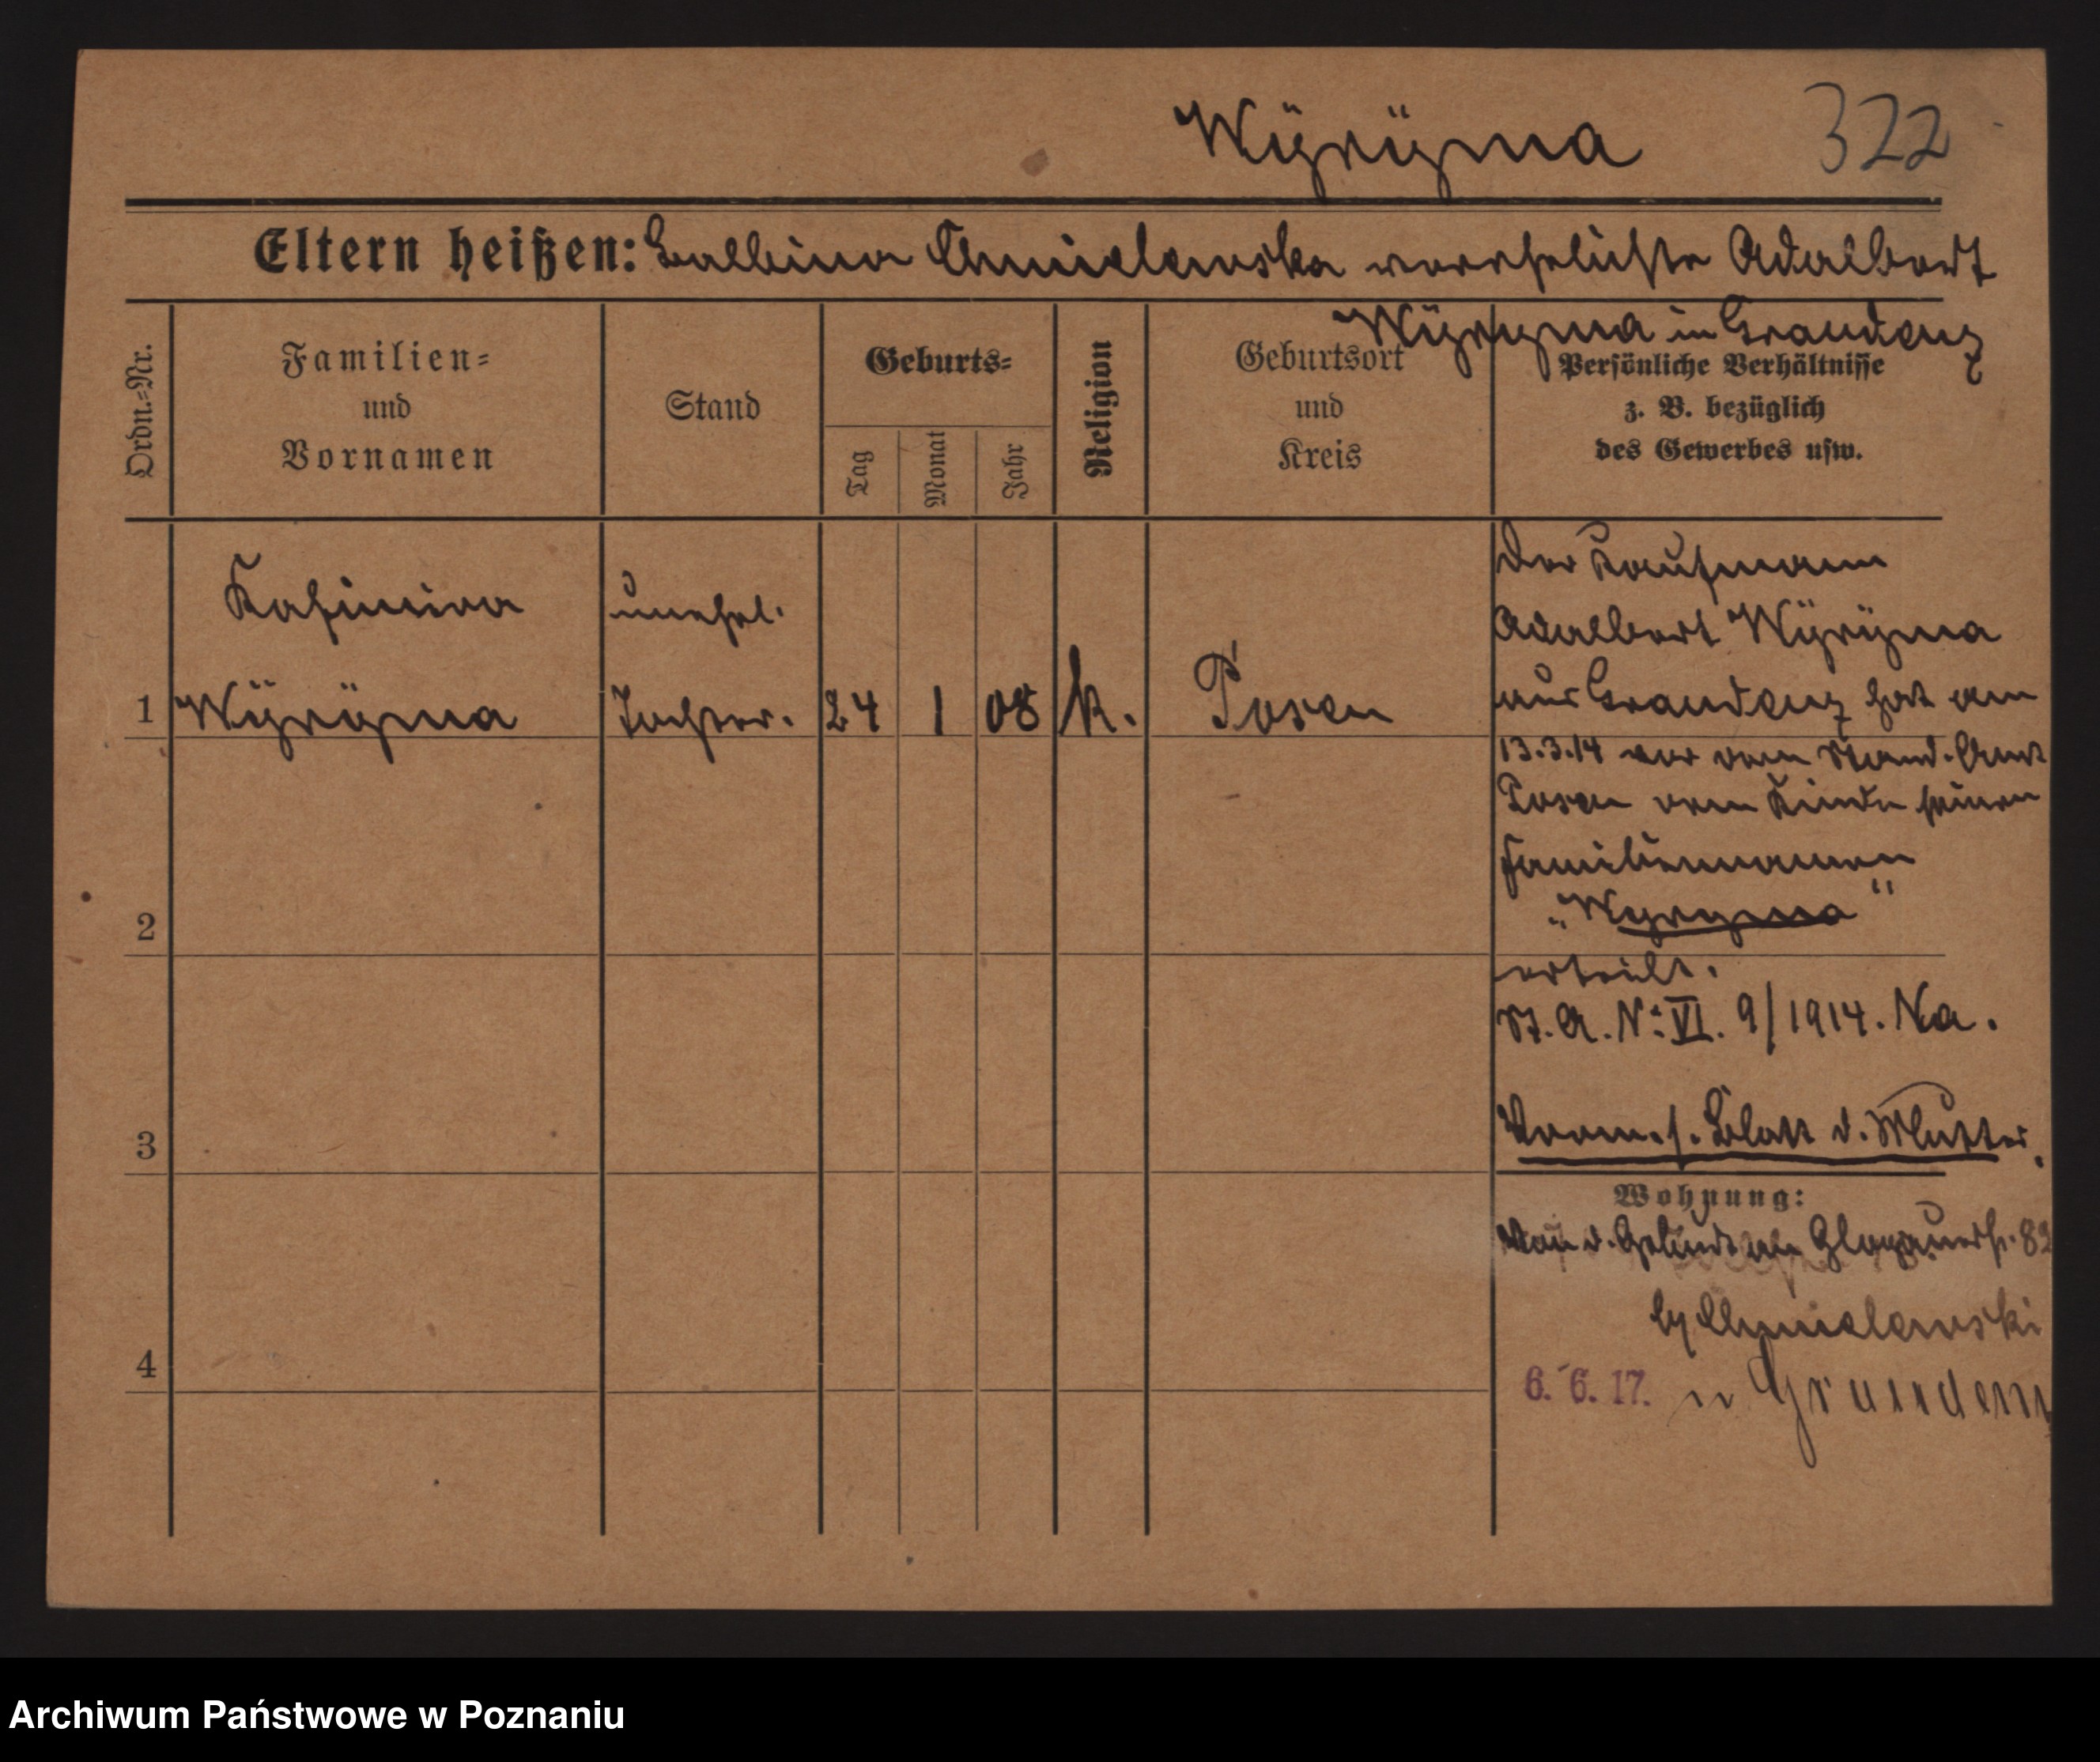 Wÿrÿzma 322
Eltern heißen: Balbina Chmielewska verehelichte Adalbert
Wÿrÿzma in Graudenz
Ordn.-Nr.
Familien-
und
Vornamen
Stand
Geburts-
Tag
Monat
Jahr
Religion
Geburtsort
und
Kreis
Persönliche Verhältnisse
z. B. bezüglich
des Gewerbes usw.
1
Kasimira
Wÿrÿzma
unehel.
Tochter.
24
1
08
k.
Posen
Der Kaufmann
Adalbert Wÿrÿzma
aus Graudenz hat am
13.3.14 vor dem Stand. Amt
Posen dem Kinde seinen
Familiennamen
„Wyryzma"
erteilt.
St. A. No VI. 9/1914. Na.
2
3
4
Verm. s. Blatt d. Mutter.
Wohnung:
Von d. Geburt an Glogauerstr. 82
by Chmielewski
6. 6. 17. n Graudenz
Archiwum Państwowe w Poznaniu